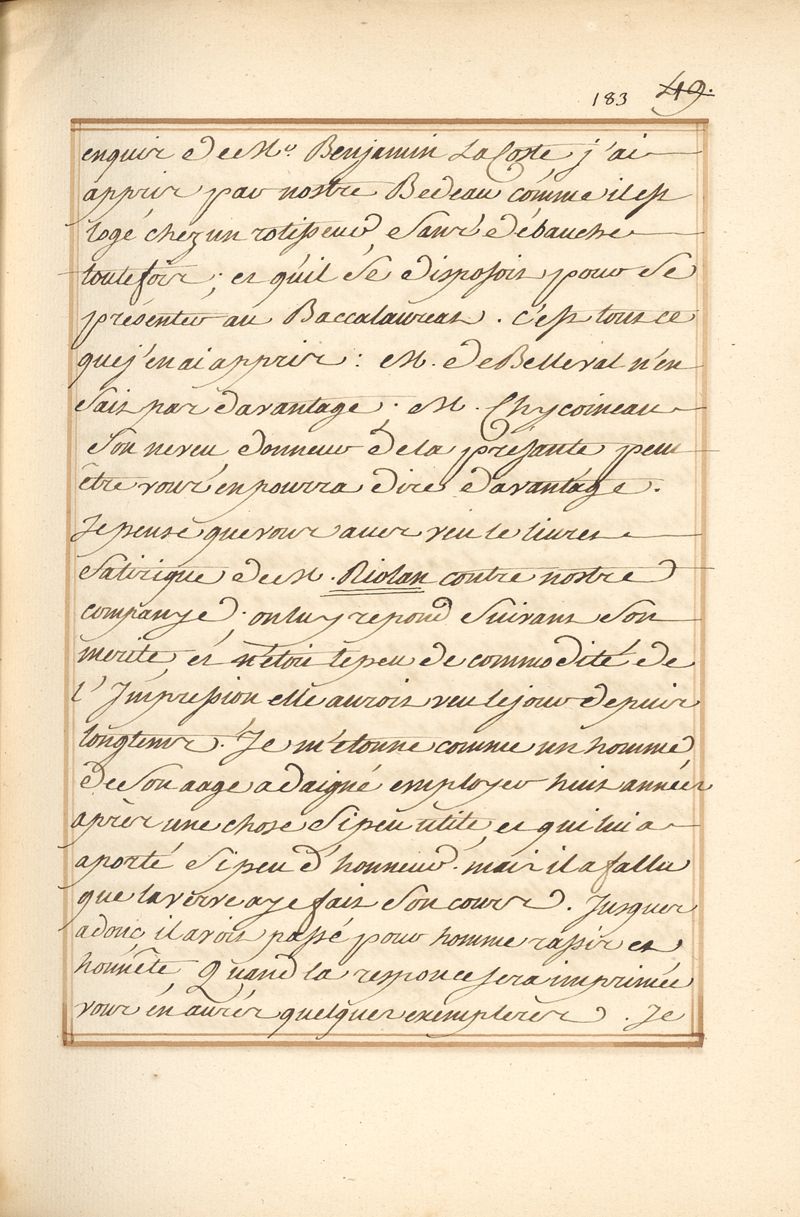 183 49.
enquis de Mr. Benjamin La Coste j'ai
appris par nostre Bedeau cómme il est
logé chez un rotisseur, sans débauche
toutefois ; et qu'il se disposoit pour se
présenter au Baccalaureat . c'est tout ce
que j'en ai appris : M. de Belleval n'en
sait pas davantage ; M. Chycoineau
son neveu donneur de la présante peut
être vous en pourra dire davantage .
Je pense que vous aves veu le livret
satirique de M. Riolan contre nostre
companye . on luy repond suivant son
merite, et n'étoit le peu de commodité de
l'Impression elle auroit veu le jour depuis
longtems . Je m'étonne comme un homme
de son aage a daigné employer huit années
aprés une chose si peu utile, et qui lui a
aporté si peu d'honneur . mais il a fallu
que la verve aye fait son cours . Jusques
adonc il avoit passé pour homme rassis et
honnête Quand la responce sera imprimée
vous en aurés quelques exemplaires . Je